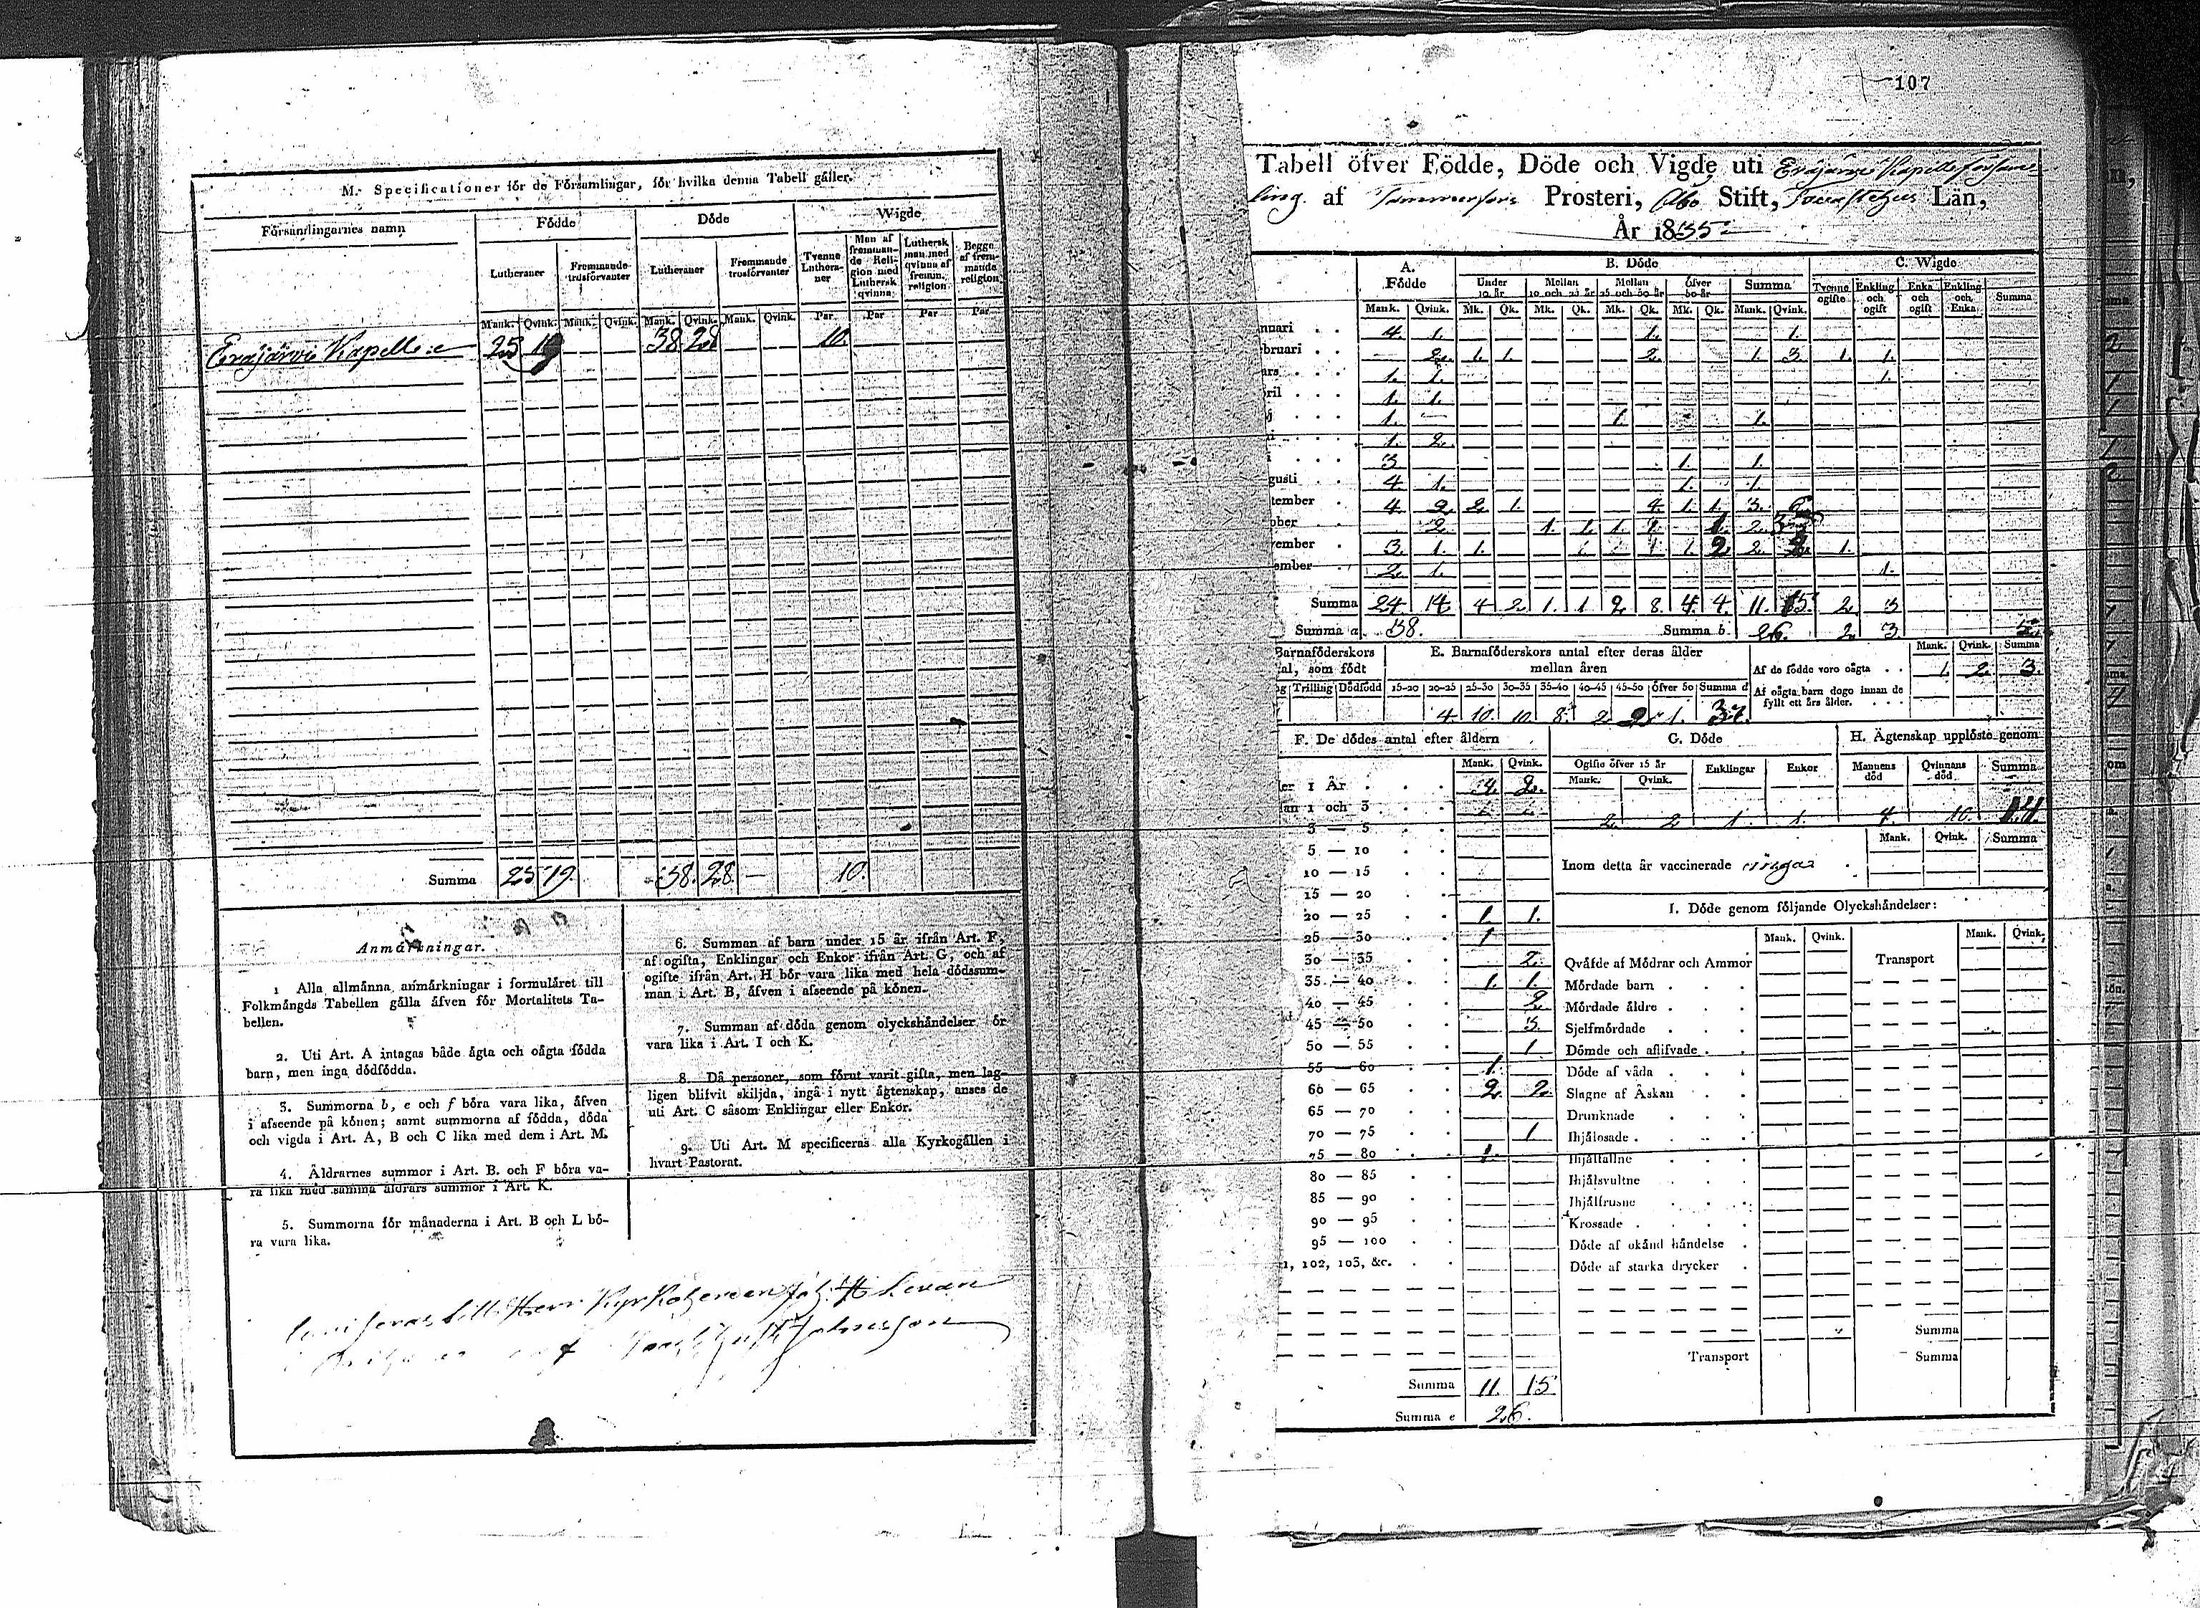 M. Specificationer för de Församlingar, för hvilka denna Tabell gäller.
Församlingarnes namn
Födde
Döde
Wigde
Lutheraner
Fremmande trosförvanter
Lutheraner
Fremmande trosförvanter
Tvenne Lutheraner
Man af fremmande Religion med Luthersk qvinna
Luthersk man med qvinna af fremm. religion
Begge af fremmande religion
Mank. Qvink. Mank. Qvink. Mank. Qvink. Mank. Qvink. Par Par Par Par
Eräjärvi Kapell 25 19 38 28 10.
Summa 25 19. 38. 28. 10.
Anmärkningar.
1 Alla allmänna anmärkningar i formuläret till
Folkmängds Tabellen gälla äfven för Mortalitets Ta-
bellen.
2. Uti Art. A intagas både ägta och oägta födda
barn, men inga dödfödda.
3. Summorna b, e och f böra vara lika, äfven
i afseende på könen; samt summorna af födda, döda
och vigda i Art. A, B och C lika med dem i Art. M.
4. Åldrarnes summor i Art. B. och F böra va-
ra lika med samma åldrars summor i Art. K.
5. Summorna för månaderna i Art. B och L bö-
ra vara lika.
6. Summan af barn under 15 år ifrån Art. F,
af ogifta, Enklingar och Enkor ifrån Art. G, och af
gifte ifrån Art. H bör vara lika med hela dödssum-
man i Art. B, äfven i afseende på könen.
7. Summan af döda genom olyckshändelser bör
vara lika i Art. I och K.
8. Då personer, som förut varit gifta, men lag-
ligen blifvit skiljda, ingå i nytt ägtenskap, anses de
uti Art. C såsom Enklingar eller Enkor.
9. Uti Art. M specificeras alla Kyrkogällen i
hvart Pastorat.
till Herr Kyrkoherden Joh: H Levan
af
107
Tabell öfver Födde, Döde och Vigde uti Eräjärvi Kapellförsam-
ling. af Tammerfors Prosteri, Åbo Stift, Tavastehus Län,
År 1835
A. Födde
B. Döde
C. Wigde
Under 10 år
Mellan 10 och 25 år
Mellan 25 och 50 år
Öfver 50 år
Summa
Tvenne ogifte
Enkling och ogift
Enka och ogift
Enkling och Enka
Summa
Mank. Qvink. Mk. Qk. Mk. Qk. Mk. Qk. Mk. Qk. Mank. Qvink.
nuari 4. 1. 1. 1.
bruari 2. 1. 1. 2. 1. 3. 1. 1.
ars 1. 1. 1.
pril 1. 1.
j 1. 1. 1.
i 1. 2.
i 3 1. 1.
gusti 4 1. 1. 1.
tember 4 2 2. 1. 4 1. 1. 3. 6
ober 2. 1. 1. 1. 1. 1. 2.
vember 3. 1. 1. 1 1. 2. 2. 1.
ember 2. 1. 1.
Summa 24 14 4 2 1. 1 2 8. 4 4. 11. 15. 2 3
Summa a. 38.
Summa b 26. 2 3 5
Barnaföderskors
al, som födt
g Trilling Dödfödd
E. Barnaföderskors antal efter deras ålder
mellan åren
15-20 20-25 25-30 30-35 35-40 40-45 45-50 Öfver 50 Summa d
4. 10. 10. 8. 2 2. 1. 37.
Mank. Qvink. Summa
Af de födde voro oägta . . 1. 2. 3.
Af oägta barn dogo innan de
fyllt ett års ålder. . . .
F. De dödes antal efter åldern
Mank. Qvink.
er 1 År 4 2.
an 1 och 3
3 — 5
5 — 10
10 — 15
15 — 20
20 — 25 1 1.
25 — 30 1
30 — 35 2.
35 — 40 1. 1.
40 — 45 2.
45 — 50 3.
50 — 55 1
55 — 60 1.
60 — 65 2. 2.
65 — 70
70 — 75 1
75 — 80 1.
80 — 85
85 — 90
90 — 95
95 — 100
1, 102, 103, &c.
Summa 11. 15
Summa e 26.
G. Döde
Ogifte öfver 15 år
Enklingar
Enkor
Mank. Qvink.
2. 2 1. 1.
H. Ägtenskap upplöste genom
Mannens död
Qvinnans död.
Summa
4. 10. 14.
Mank. Qvink. Summa
Inom detta år vaccinerade inga
I. Döde genom följande Olyckshändelser:
Mank. Qvink. Mank. Qvink.
Qväfde af Mödrar och Ammor
Transport
Mördade barn
Mördade äldre
Sjelfmördade
Dömde och aflifvade
Döde af våda
Slagne af Åskan
Drunknade
Ihjälosade
Ihjälfallne
Ihjälsvultne
Ihjälfrusne
Krossade
Döde af okänd händelse
Döde af starka drycker
Summa
Transport
Summa